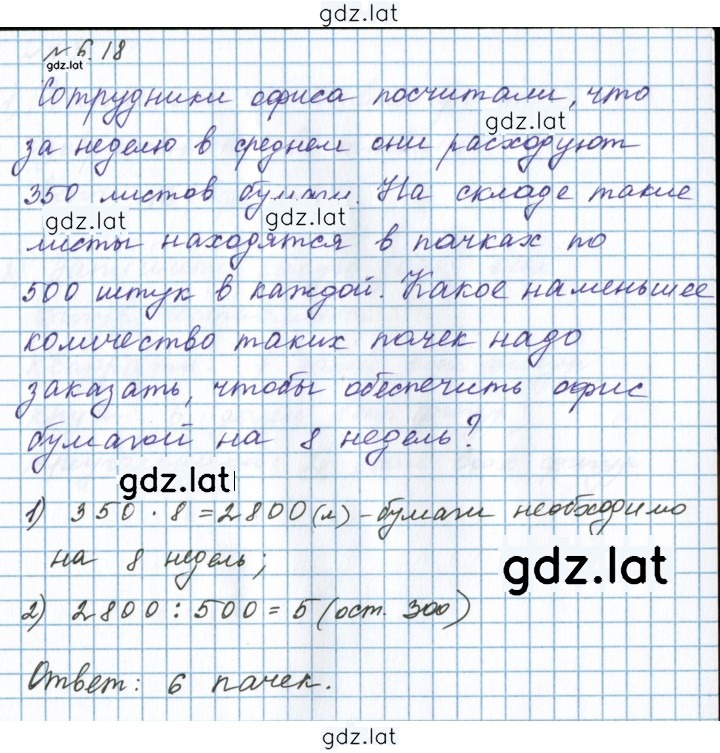 gdz.lat
№ 6.18
gdz.lat
Сотрудники офиса посчитали, что
gdz.lat
за неделю в среднем они расходуют
350 листов бумаги. На складе такие
gdz.lat gdz.lat
листы находятся в пачках по
500 штук в каждой. Какое наменьшее
количество таких пачек надо
заказать, чтобы обеспечить офис
бумагой на 8 недель?
gdz.lat
1) 350 · 8 = 2800 (л) - бумаги необходимо
на 8 недель;
gdz.lat
2) 2800 : 500 = 5 (ост. 300)
Ответ: 6 пачек.
gdz.lat